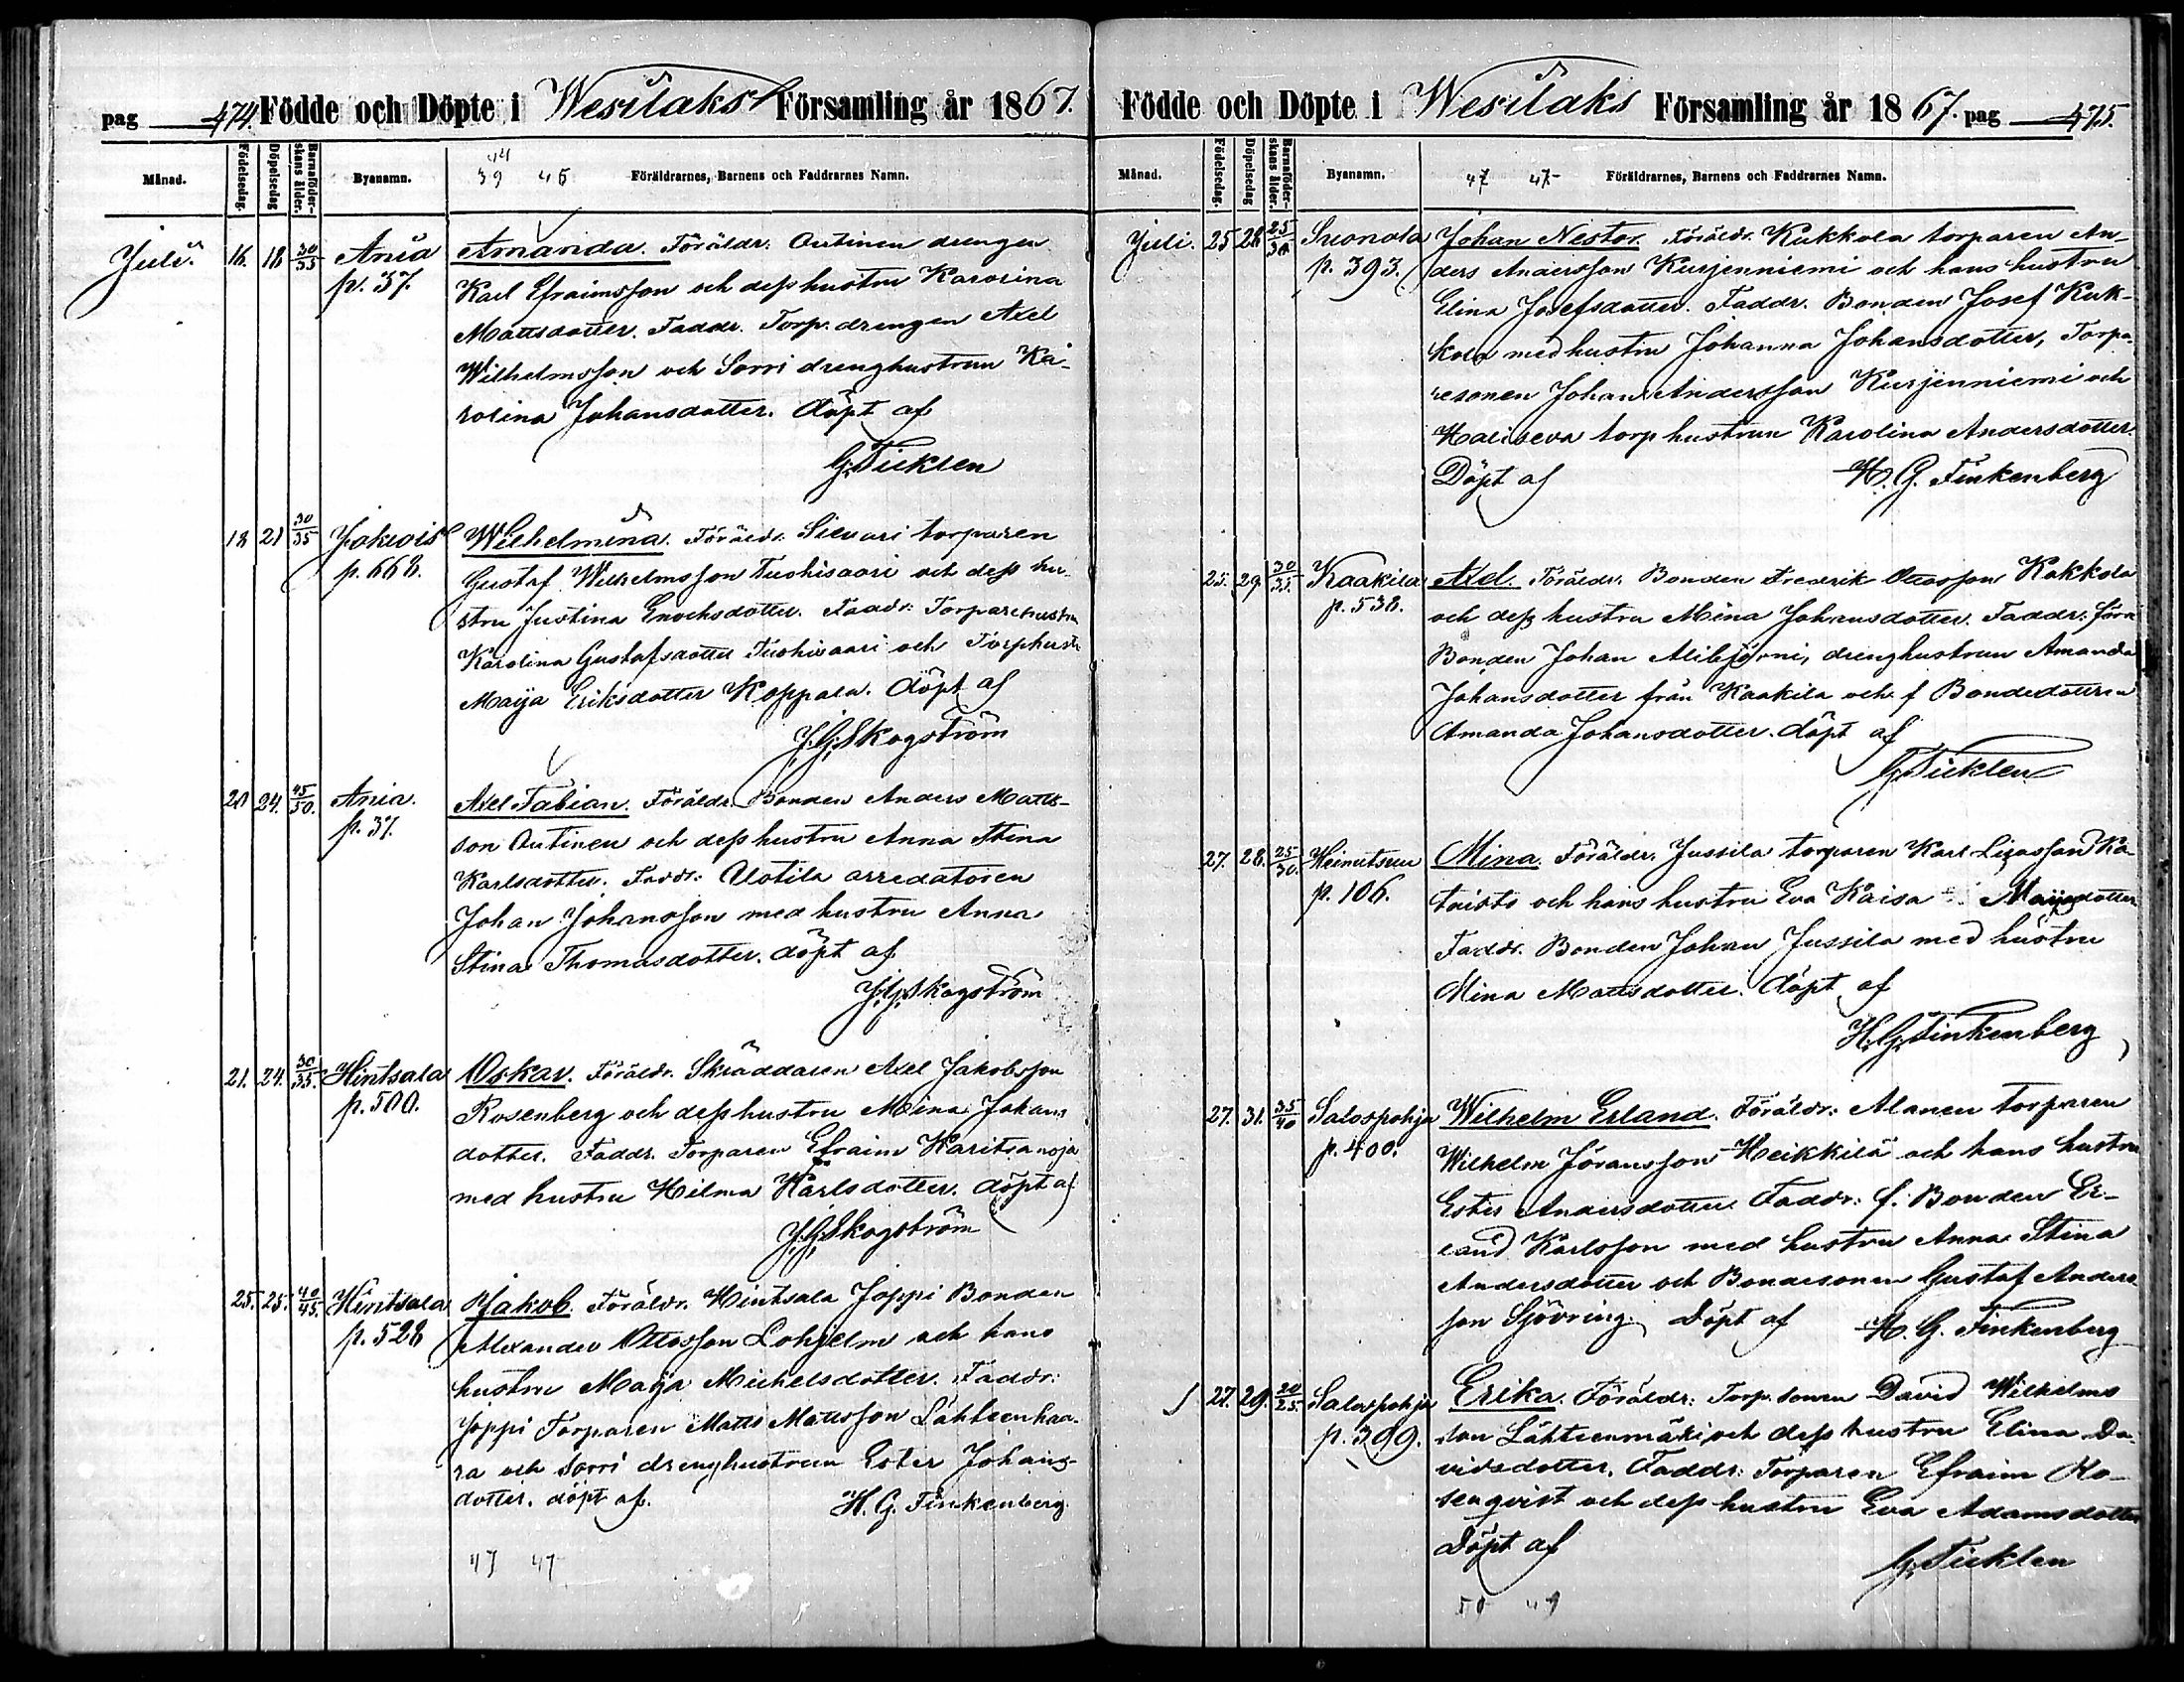 pag 474. Födde och Döpte i Wesilaks Församling år 1867.
Månad. Födelsedag. Döpelsedag Barnaföder-skans ålder. Byanamn. Föräldrarnes, Barnens och Faddrarnes Namn.
44
39 45
Juli. 16. 18 30/35 Ania Amanda. Föräldr. Outinen drengen
p. 37. Karl Efraimsson och dess hustru Karolina
Mattsdotter. Faddr. Torp. drengen Axel
Wilhelmsson och Sorri drenghustrun Ka-
rolina Johansdotter. döpt af
G. Ticklen
18 21 30/35 Jokiois Wilhelmina. Föräldr. Sievari torparen
p. 668. Gustaf Wilhelmsson Tuohisaari och dess hu-
stru Justina Enochsdotter. Faddr: Torparehustru
Karolina Gustafsdotter Tuohisaari och Torphustr
Maija Eriksdotter Koppala. döpt af
J.G. Skogström
20 24. 45/50. Ania. Axel Fabian. Föräldr. Bonden Anders Matts-
p. 37. son Outinen och dess hustru Anna Stina
Karlsdotter. Faddr: Uotila arredatoren
Johan Johansson med hustru Anna
Stina Thomasdotter. döpt af
J.G. Skogström
21. 24. 30/35. Hintsala Oskar. Föräldr. Skräddaren Axel Jakobsson
p. 500. Rosenberg och dess hustru Mina Johans
dotter. Faddr. Torparen Efraim Karitsanoja
med hustru Hilma Karlsdotter. döpt af
J.G. Skogström
25. 25. 40/45. Hintsala Jakob. Föräldr. Hintsala Joppi Bonden
p. 528 Alexander Ottosson Lohjelm och hans
hustru Maija Michelsdotter. Faddr:
Joppi Torparen Matts Mattsson Lähteenhaa-
ra och Sorri drenghustrun Ester Johans-
dotter. döpt af. H. G. Finkenberg.
47 47
Födde och Döpte i Wesilaks Församling år 1867. pag 475.
Månad. Födelsedag. Döpelsedag Barnaföder-skans ålder. Byanamn. Föräldrarnes, Barnens och Faddrarnes Namn.
47 47
Juli. 25 28 25/30 Suonola Johan Nestor. Föräldr. Kukkola torparen An-
p. 393. ders Andersson Kurjenniemi och hans hustru
Elina Josefsdotter. Faddr. Bonden Josef Kuk-
kola med hustru Johanna Johansdotter, Torpa-
resonen Johan Andersson Kurjenniemi och
Haliseva torphustrun Karolina Andersdotter.
Döpt af H. G. Finkenberg
25. 29 30/35. Kaakila Axel. Föräldr. Bonden Fredrik Ottosson Kokkola
p. 538. och dess hustru Mina Johansdotter. Faddr: förra
Bonden Johan Alibjörni, drenghustrun Amanda
Johansdotter från Kaakila och f Bondedottren
Amanda Johansdotter. döpt af
G. Ticklen
27. 28. 25/30. Heinutsuu Mina. Föräldr. Jussila torparen Karl Lisasson Ka-
p. 106. taisto och hans hustru Eva Kaisa Maijasdotter
Faddr. Bonden Johan Jussila med hustru
Mina Mattsdotter. döpt af
H. G. Finkenberg
27. 31. 35/40 Salospohja Wilhelm Erland. Föräldr: Alanen torparen
p. 400. Wilhelm Göransson Heikkilä och hans hustru
Ester Andersdotter. Faddr: f. Bonden Er-
land Karlsson med hustru Anna Stina
Andersdotter och Bondesonen Gustaf Anders
son Sjövring. Döpt af H. G. Finkenberg
27. 29. 20/25. Salospohja Erika. Föräldr: Torp. sonen David Wilhelms
p. 399. son Lähteenmäki och dess hustru Elina Da-
vidsdotter. Faddr: Torparen Efraim Ro-
senqvist och dess hustru Eva Adamsdotter
Döpt af
G. Ticklen
50 49